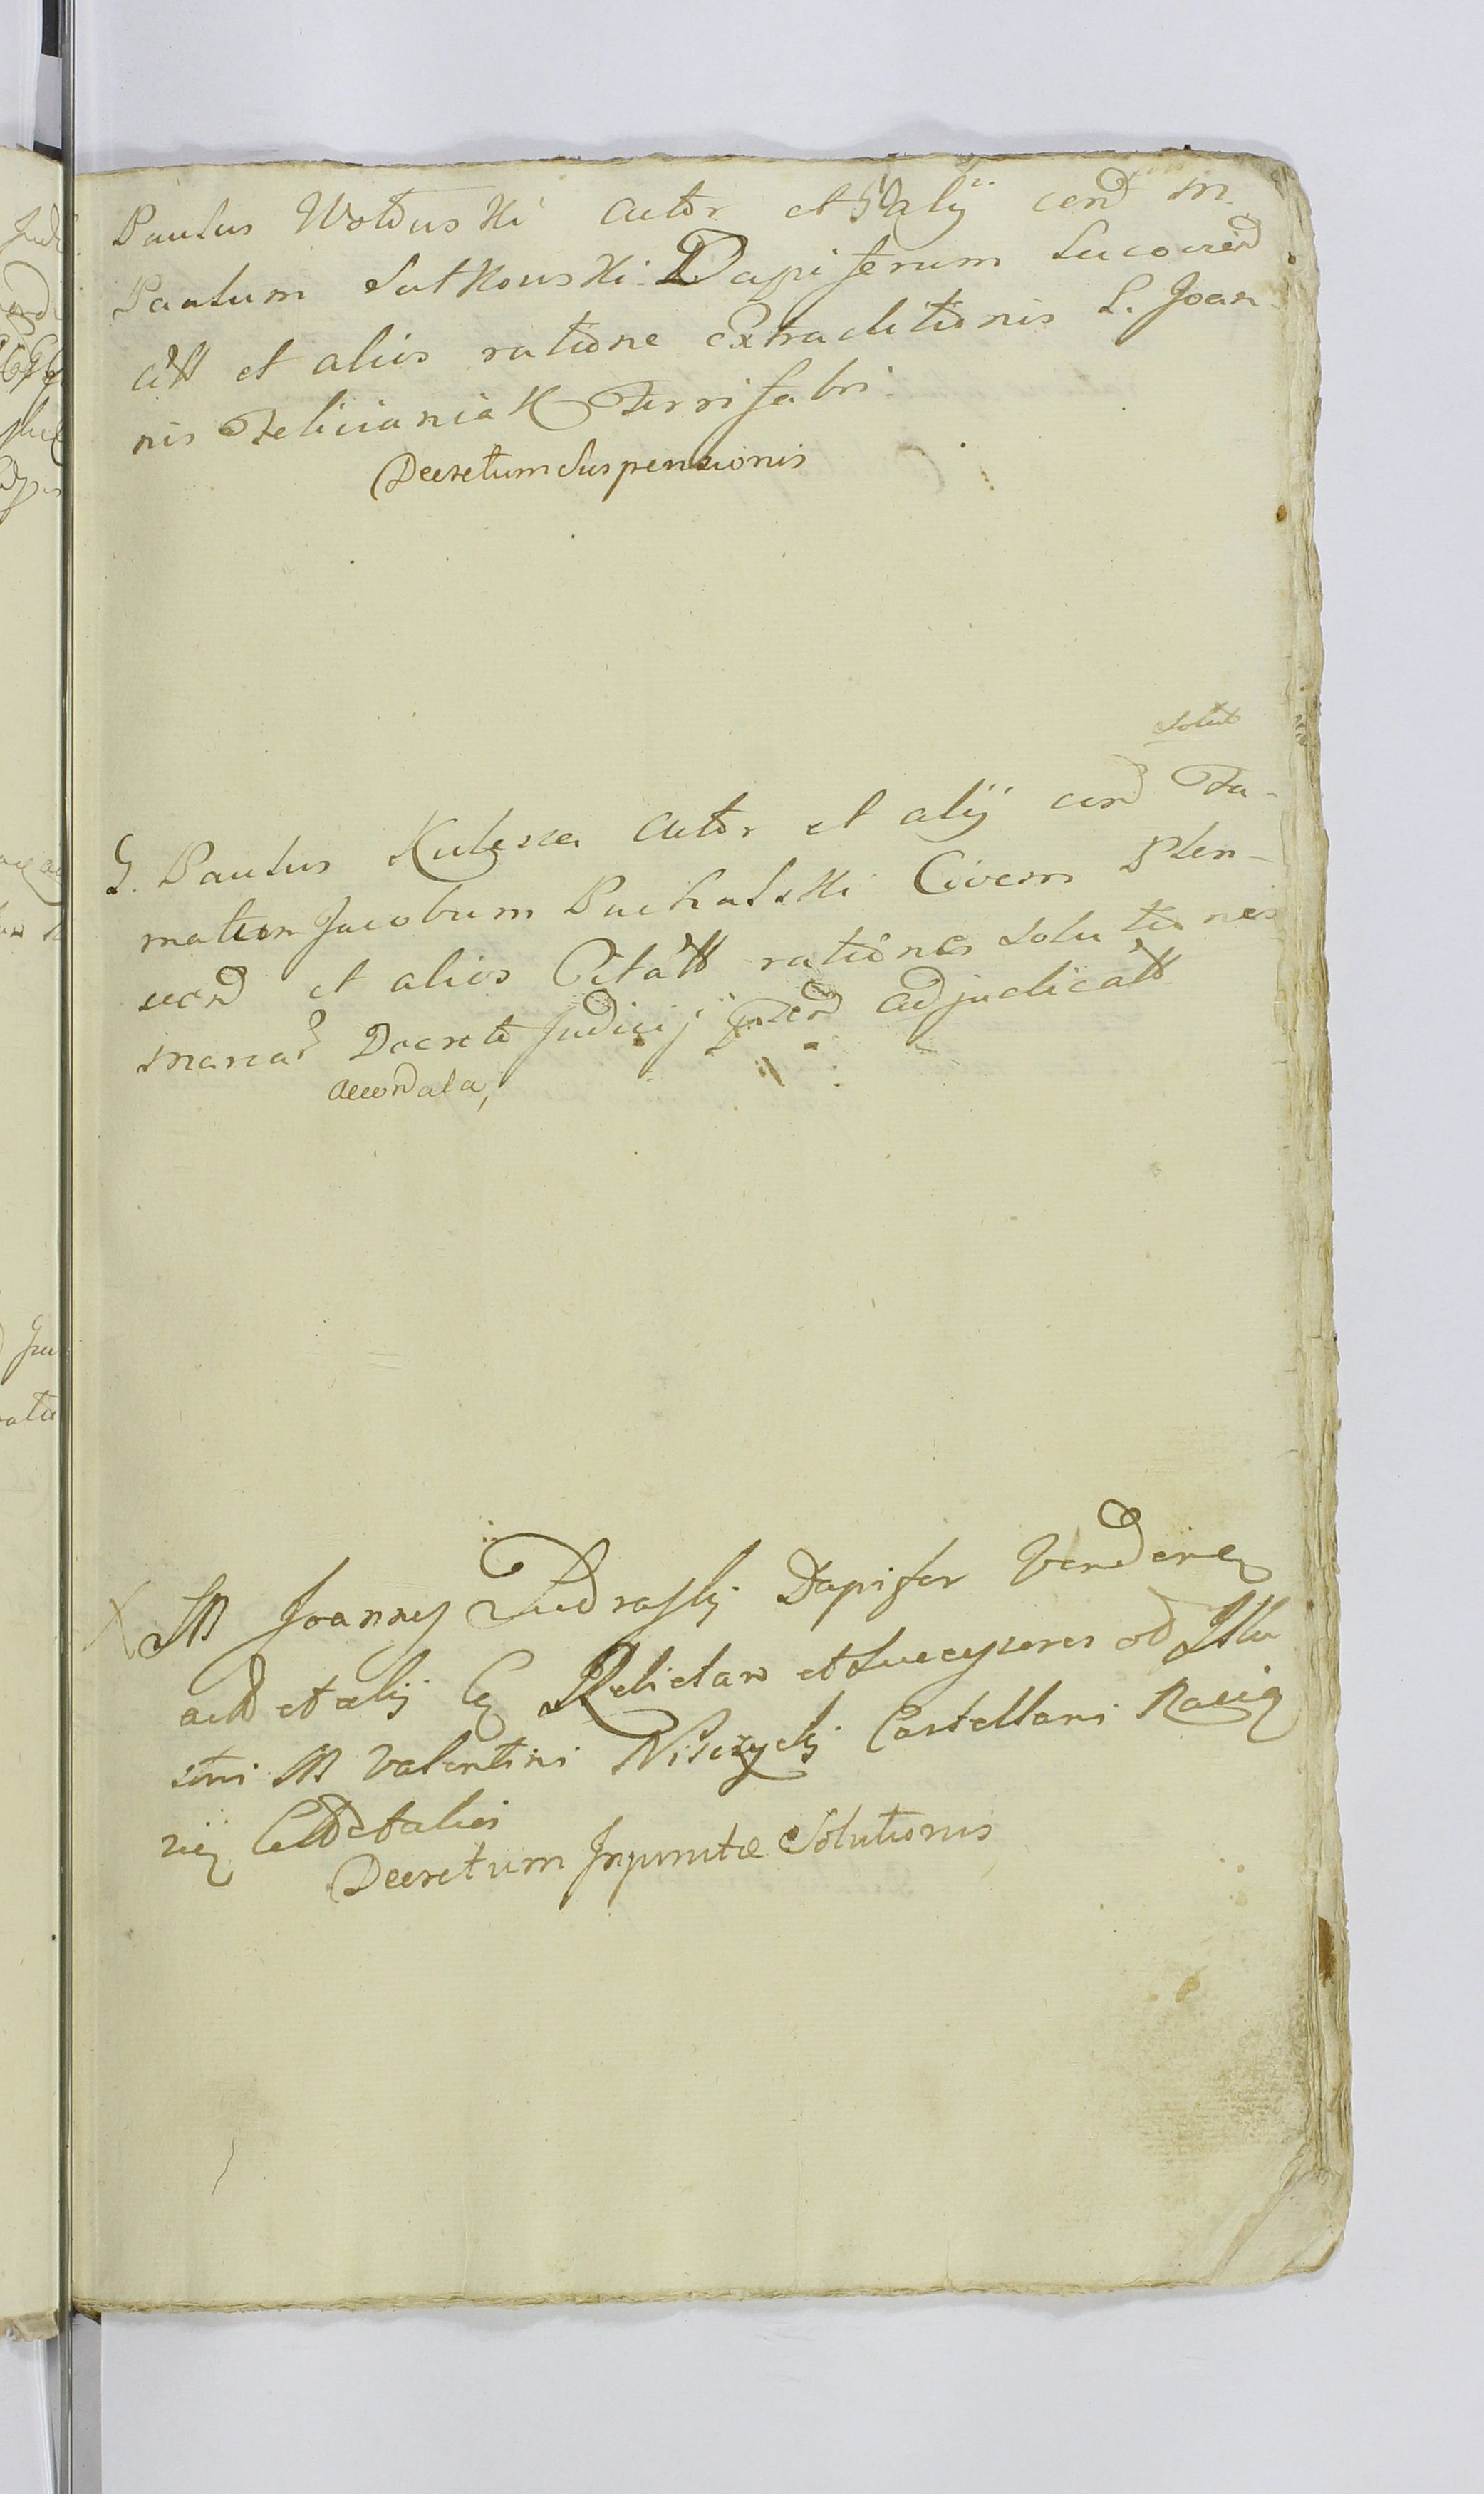 Paulus Wolduski actor et alij cond M.
Paulum Sutkouski Dapiferum Lucovien
citt et alios ratione extraditionis L. Joan-
nis Felicianiak Ferrifabri
Decretum Suspensionis
Solut
G. Paulus Kulesza actor et alij cond Fa-
matum Jacobum Puchalski Civem Plon-
scen et alios Citatt rationes solutiones
marcar Decreto Judicij adjudicatt
accordata,
M Joannes Dapifer Vendene
act et alij C Relictam et Successores od Illu
stri M Valentini Niszczycki Castellani Racia
zie Citt et alios
Decretum Inpunitae Solutionis